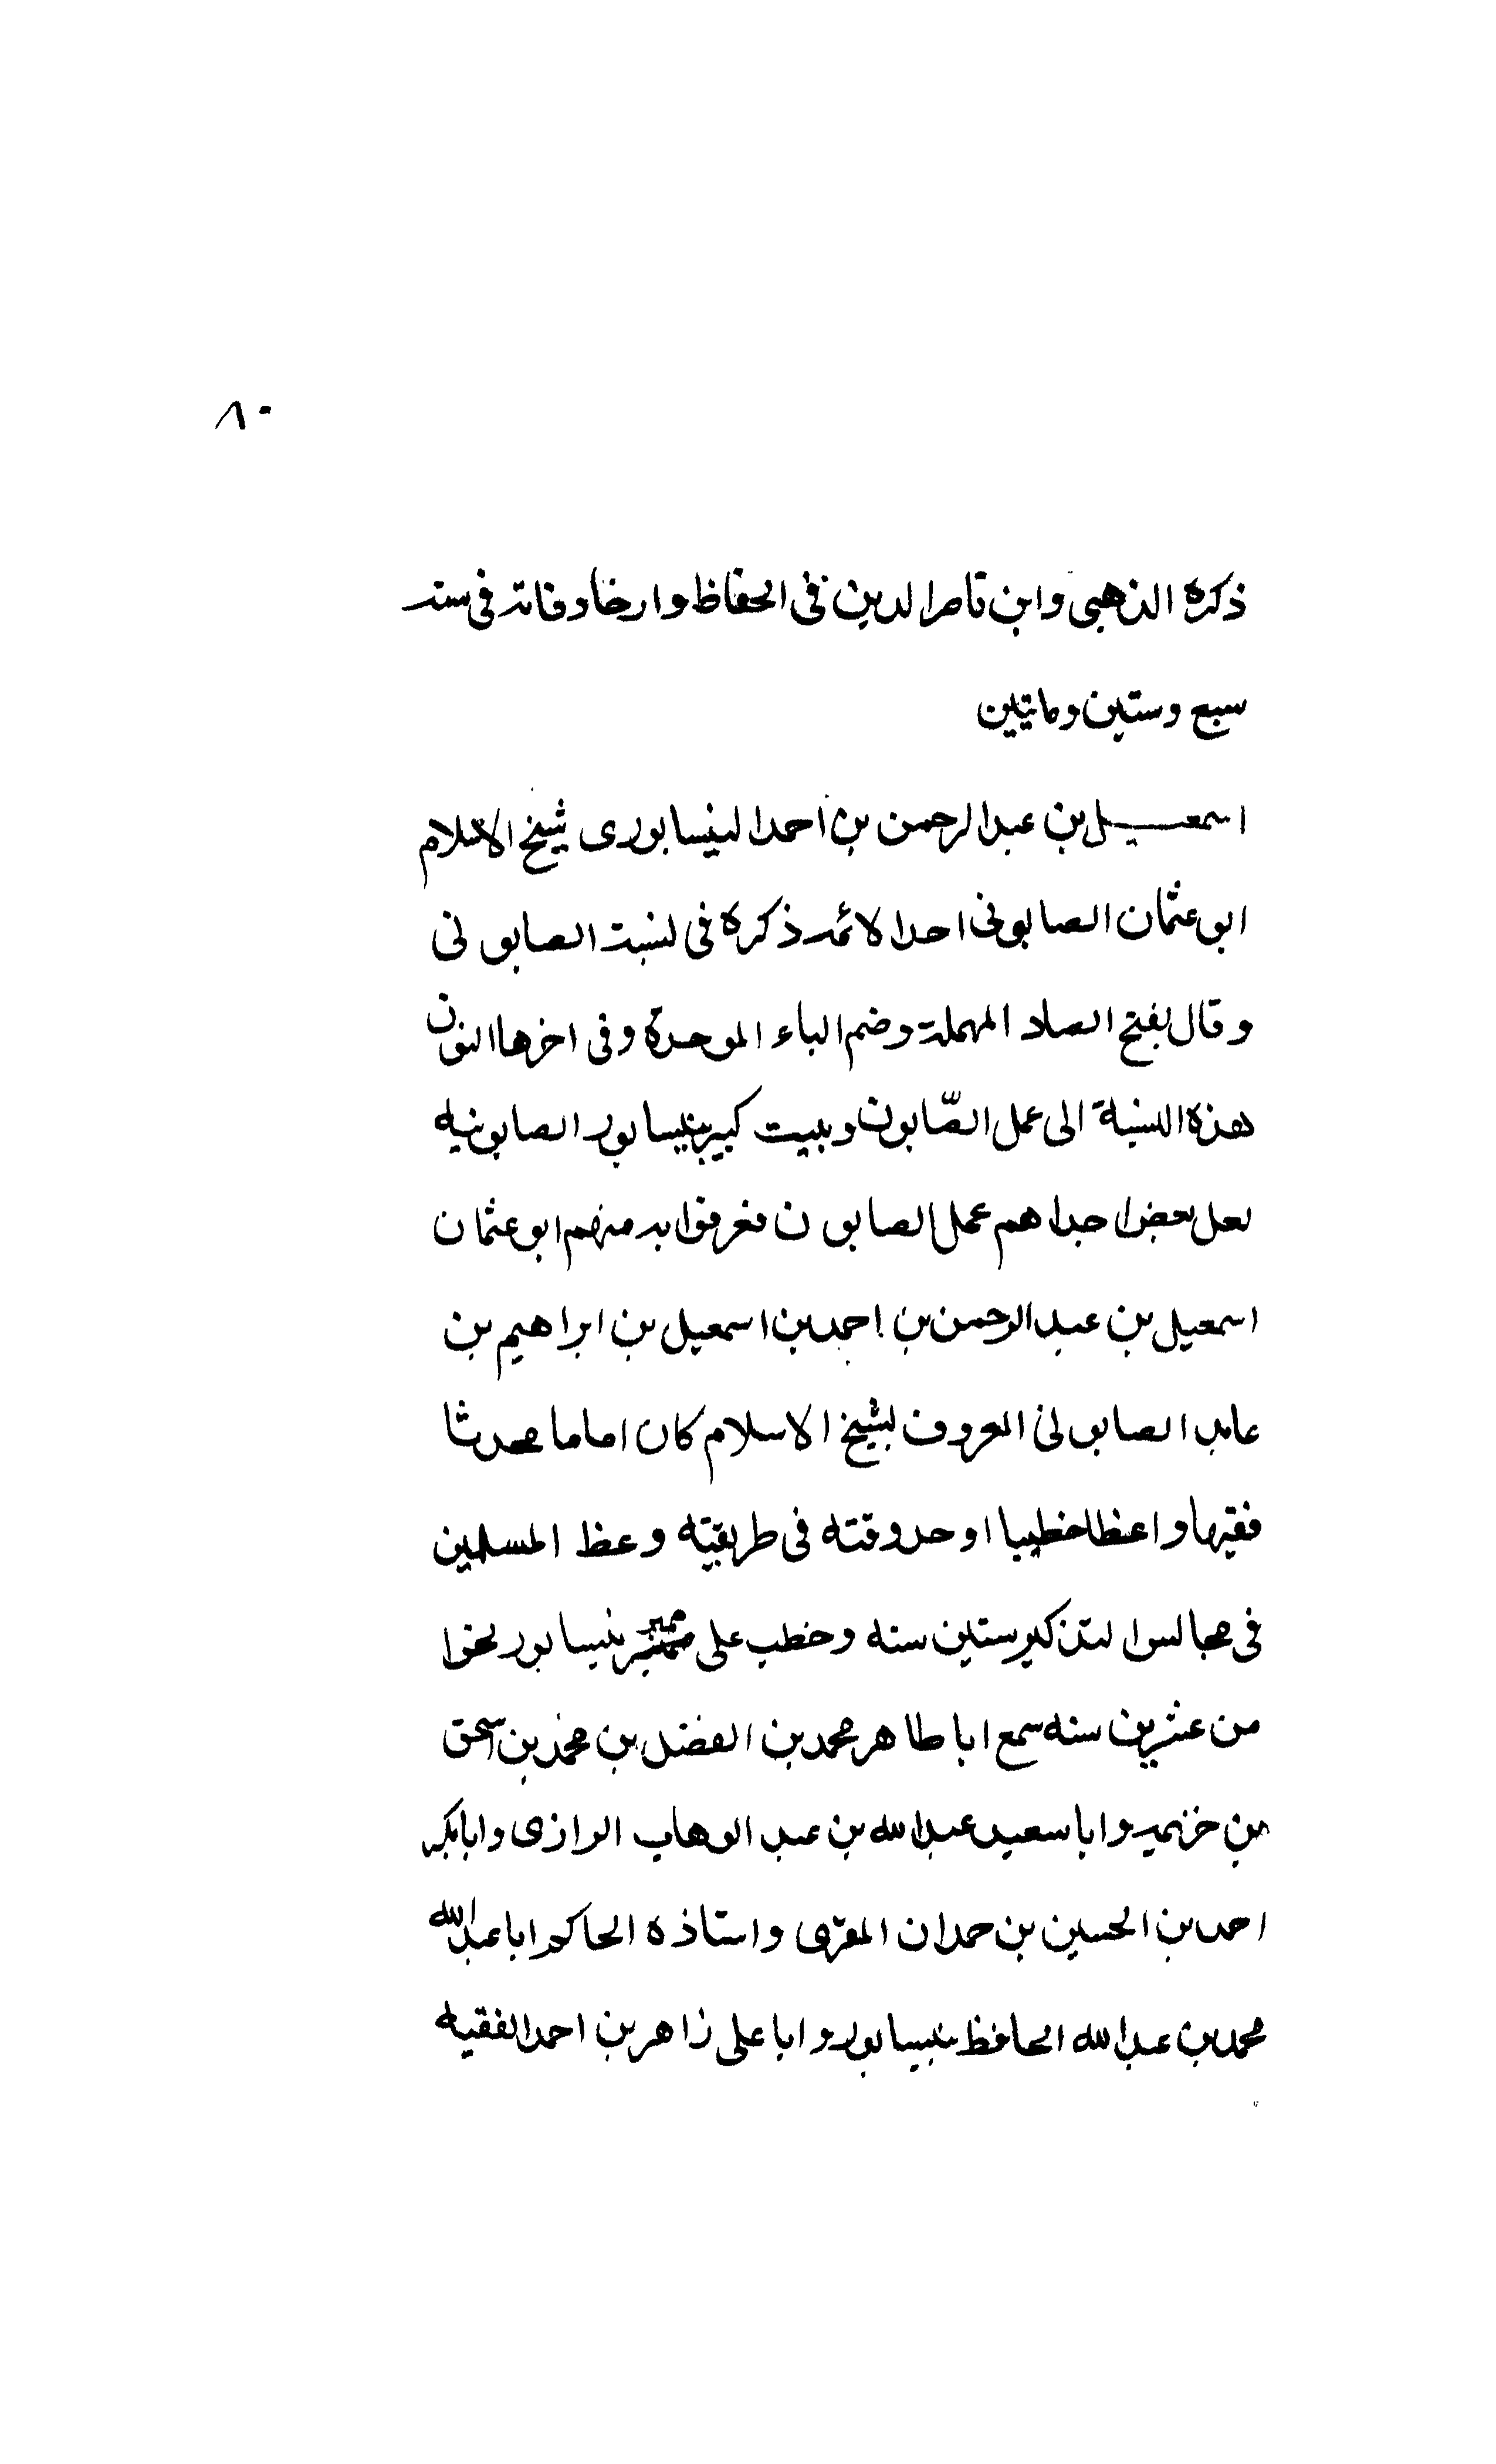 ٨٠
ذكره الذهبي وابن ناصر الدين في الحفاظ وارخا وفاته في سنة
سبع وستين ومايتين
اسمعيل بن عبد الرحمن بن احمد النيسابورى شيخ الاسلام
ابو عثمان الصابونى احد الائمة ذكره فى نسبت الصابونى
وقال بفتح الصاد المهملة وضم الباء الموحدة وفى اخرها النون
هذه النسبة الى عمل الصّابون وبيت كبير بنيسابور الصابونيه
لعل بعض اجداهم عمل الصابون فعرفوا به منهم ابو عثمان
اسمعيل بن عبد الرحمن بن احمد بن اسمعيل بن ابراهيم بن
عابد الصابونى المعروف بشيخ الاسلام كان اماما محدثا
فقيها واعظا خطيبا اوحد وقته فى طريقته وعظ المسلمين
فى مجالس التذكير ستين سنه وخطب على منبر نيسابور نحوا
من عشرين سنه سمع ابا طاهر محمد بن الفضل بن محمد بن اسحق
بن خزيمه وابا سعيد عبد الله بن عبد الوهاب الرازى وابابكر
احمد بن الحسين بن حمدان المقرى واستاذه الحاكم ابا عبد الله
محمد بن عبد الله الحافظ بنيسابور وابا على زاهر بن احمد الفقيه